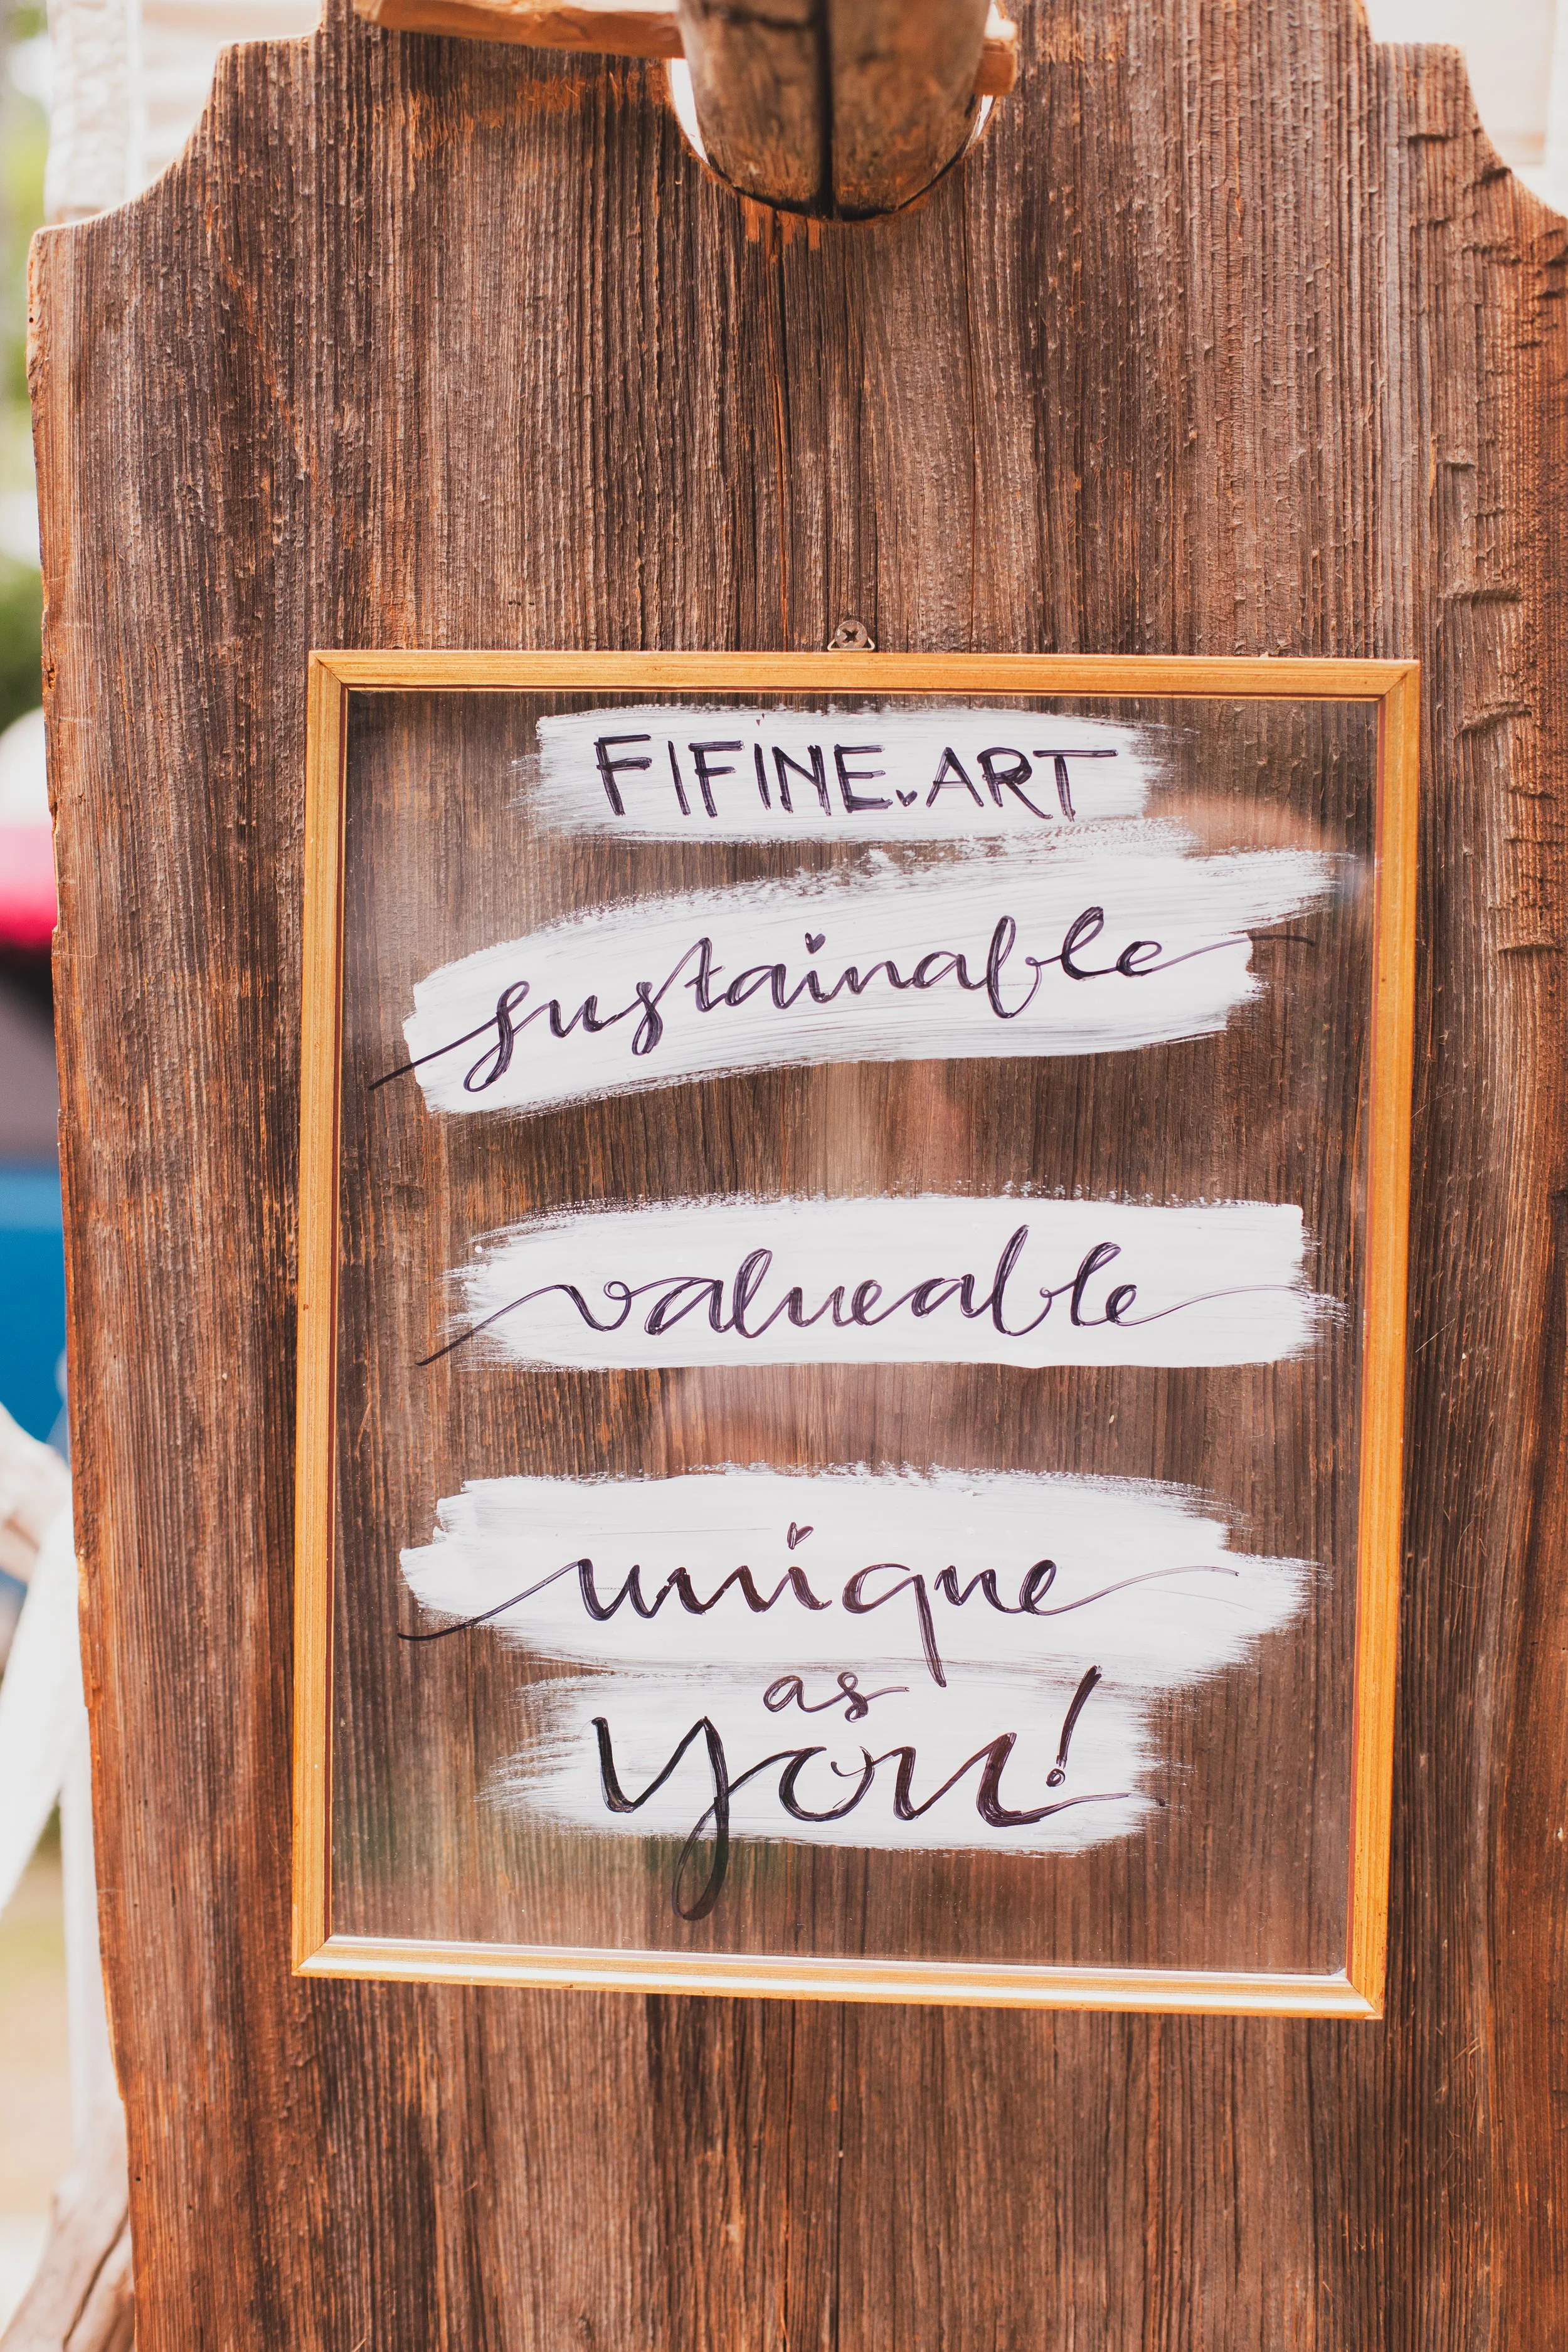 FIFINE.ART
sustainable
valueable
unique
as
you!